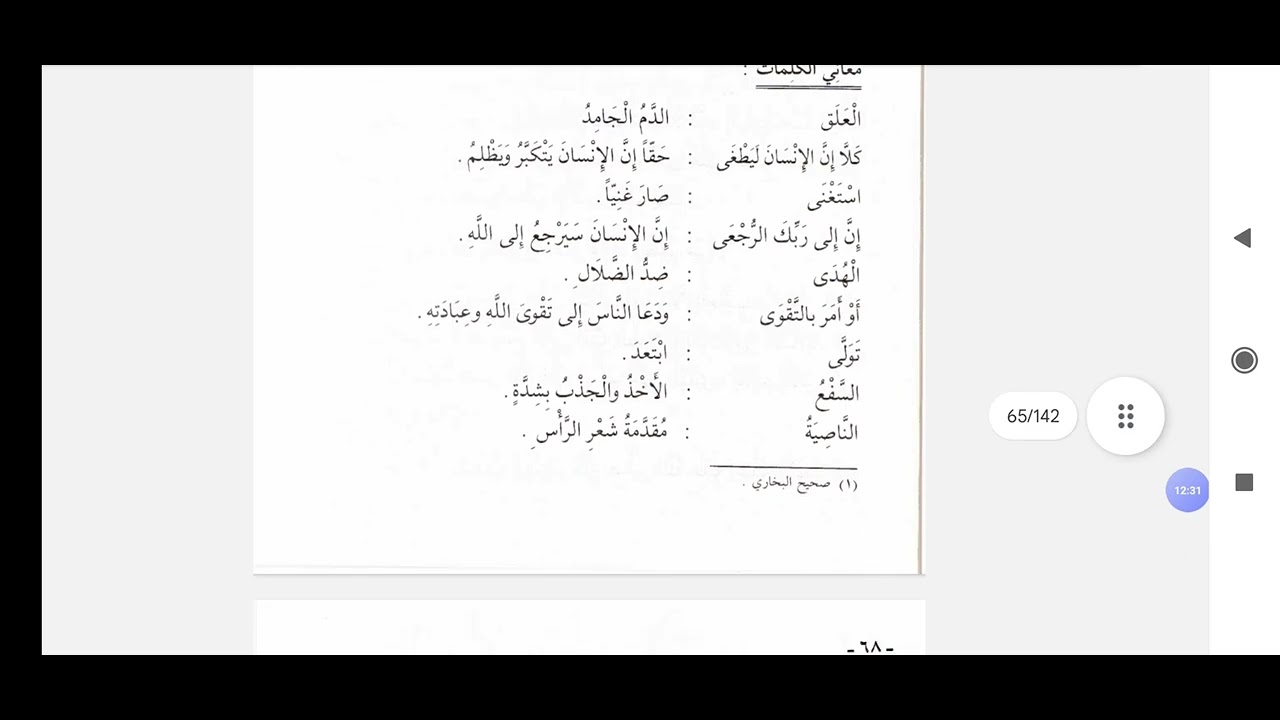 معاني الكلمات :
الْعَلَق : الدَّمُ الْجَامِدُ
كَلَّا إِنَّ الإِنْسَانَ لَيَطْغَى : حَقّاً إِنَّ الإِنْسَانَ يَتَكَبَّرُ وَيَظْلِمُ .
اسْتَغْنَى : صَارَ غَنِيّاً .
إِنَّ إِلى رَبِّكَ الرُّجْعَى : إِنَّ الإِنْسَانَ سَيَرْجِعُ إِلى اللَّهِ .
الْهُدَى : ضِدُّ الضَّلَالِ .
أَوْ أَمَرَ بالتَّقْوَى : وَدَعَا النَّاسَ إِلى تَقْوىَ اللَّهِ وعِبَادَتِهِ .
تَوَلَّى : ابْتَعَدَ .
السَّفْعُ : الأَخْذُ والْجَذْبُ بِشِدَّةٍ .
النَّاصِيَةُ : مُقَدَّمَةُ شَعْرِ الرَّأْسِ .
(١) صحيح البخاري .
65/142
12:31
- ٦٨ -